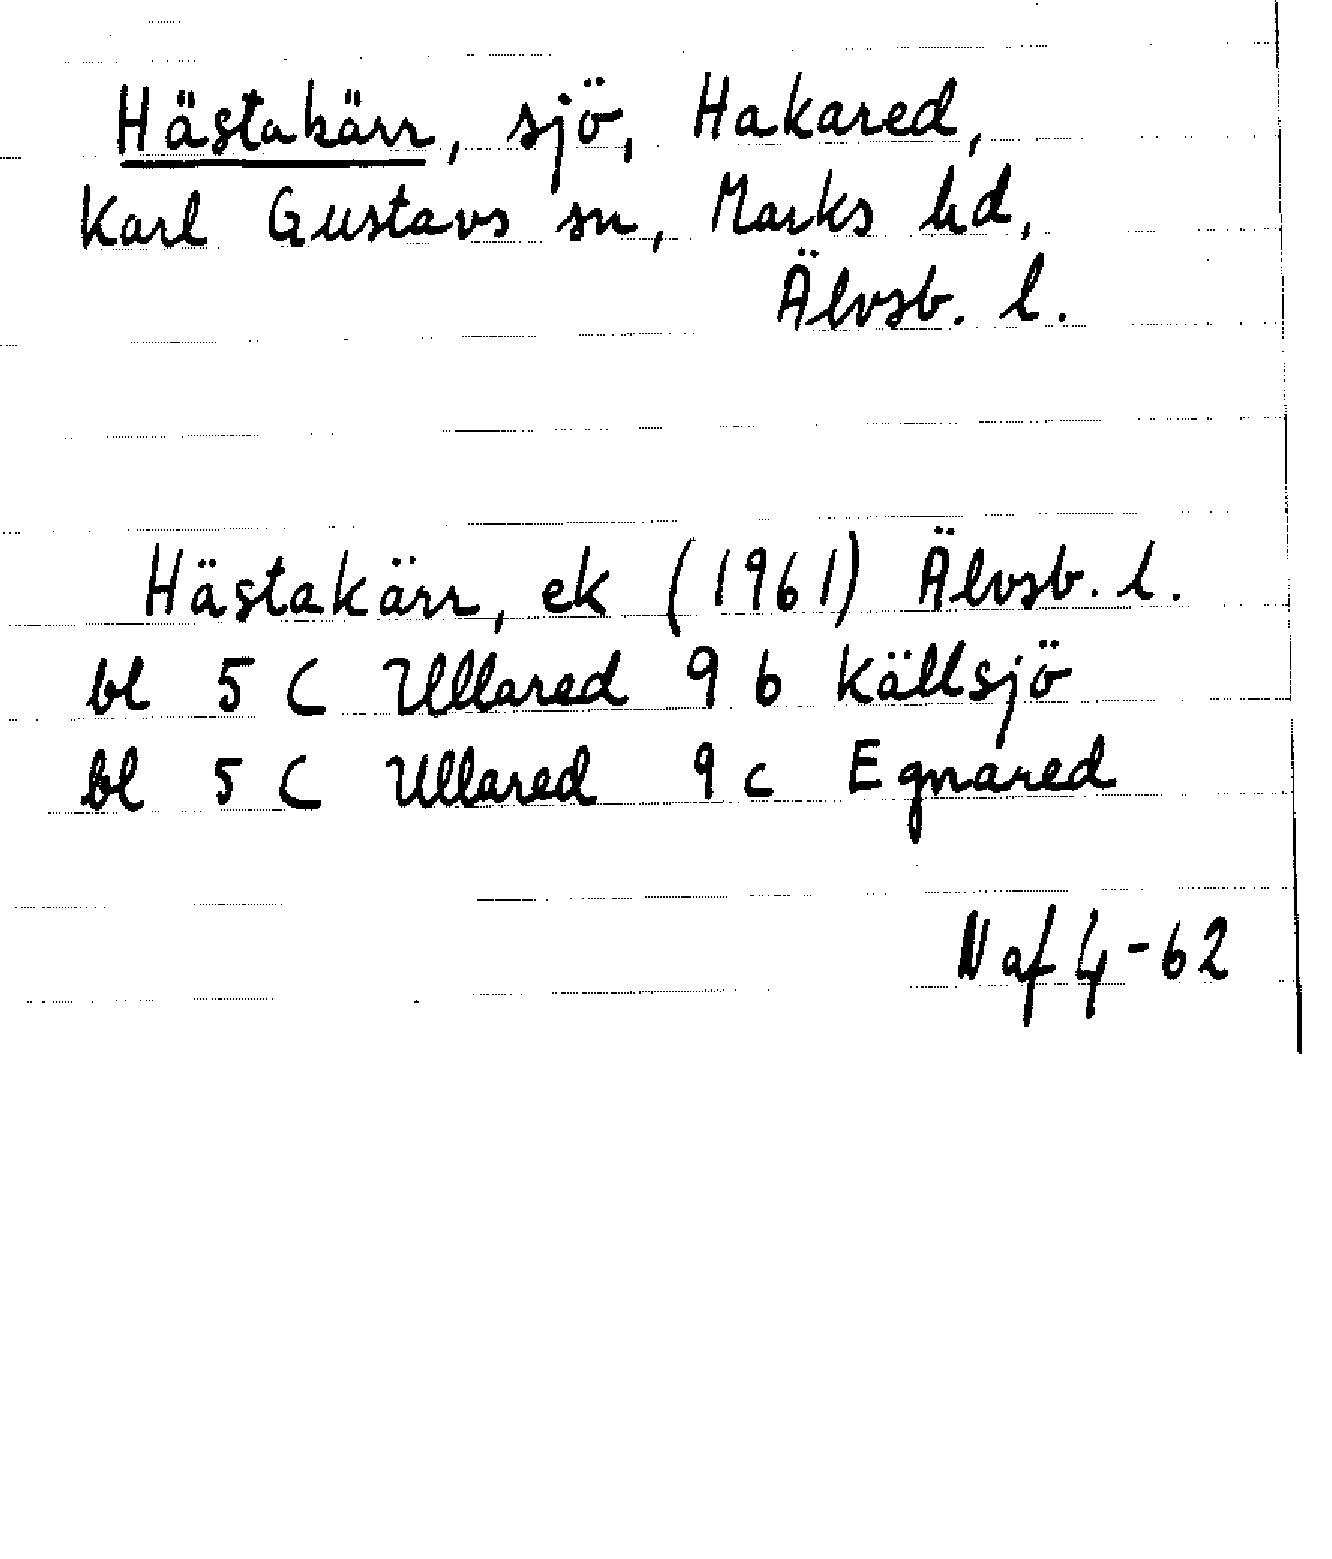 Hästakärr, sjö, Hakared,
Karl Gustavs sn, Marks hd,
Älvsb. l.
Hästakärr, ek (1961) Älvsb. l.
bl 5 C Ullared 9 b Källsjö
bl 5 C Ullared 9 c Egnared
Naf 4-62